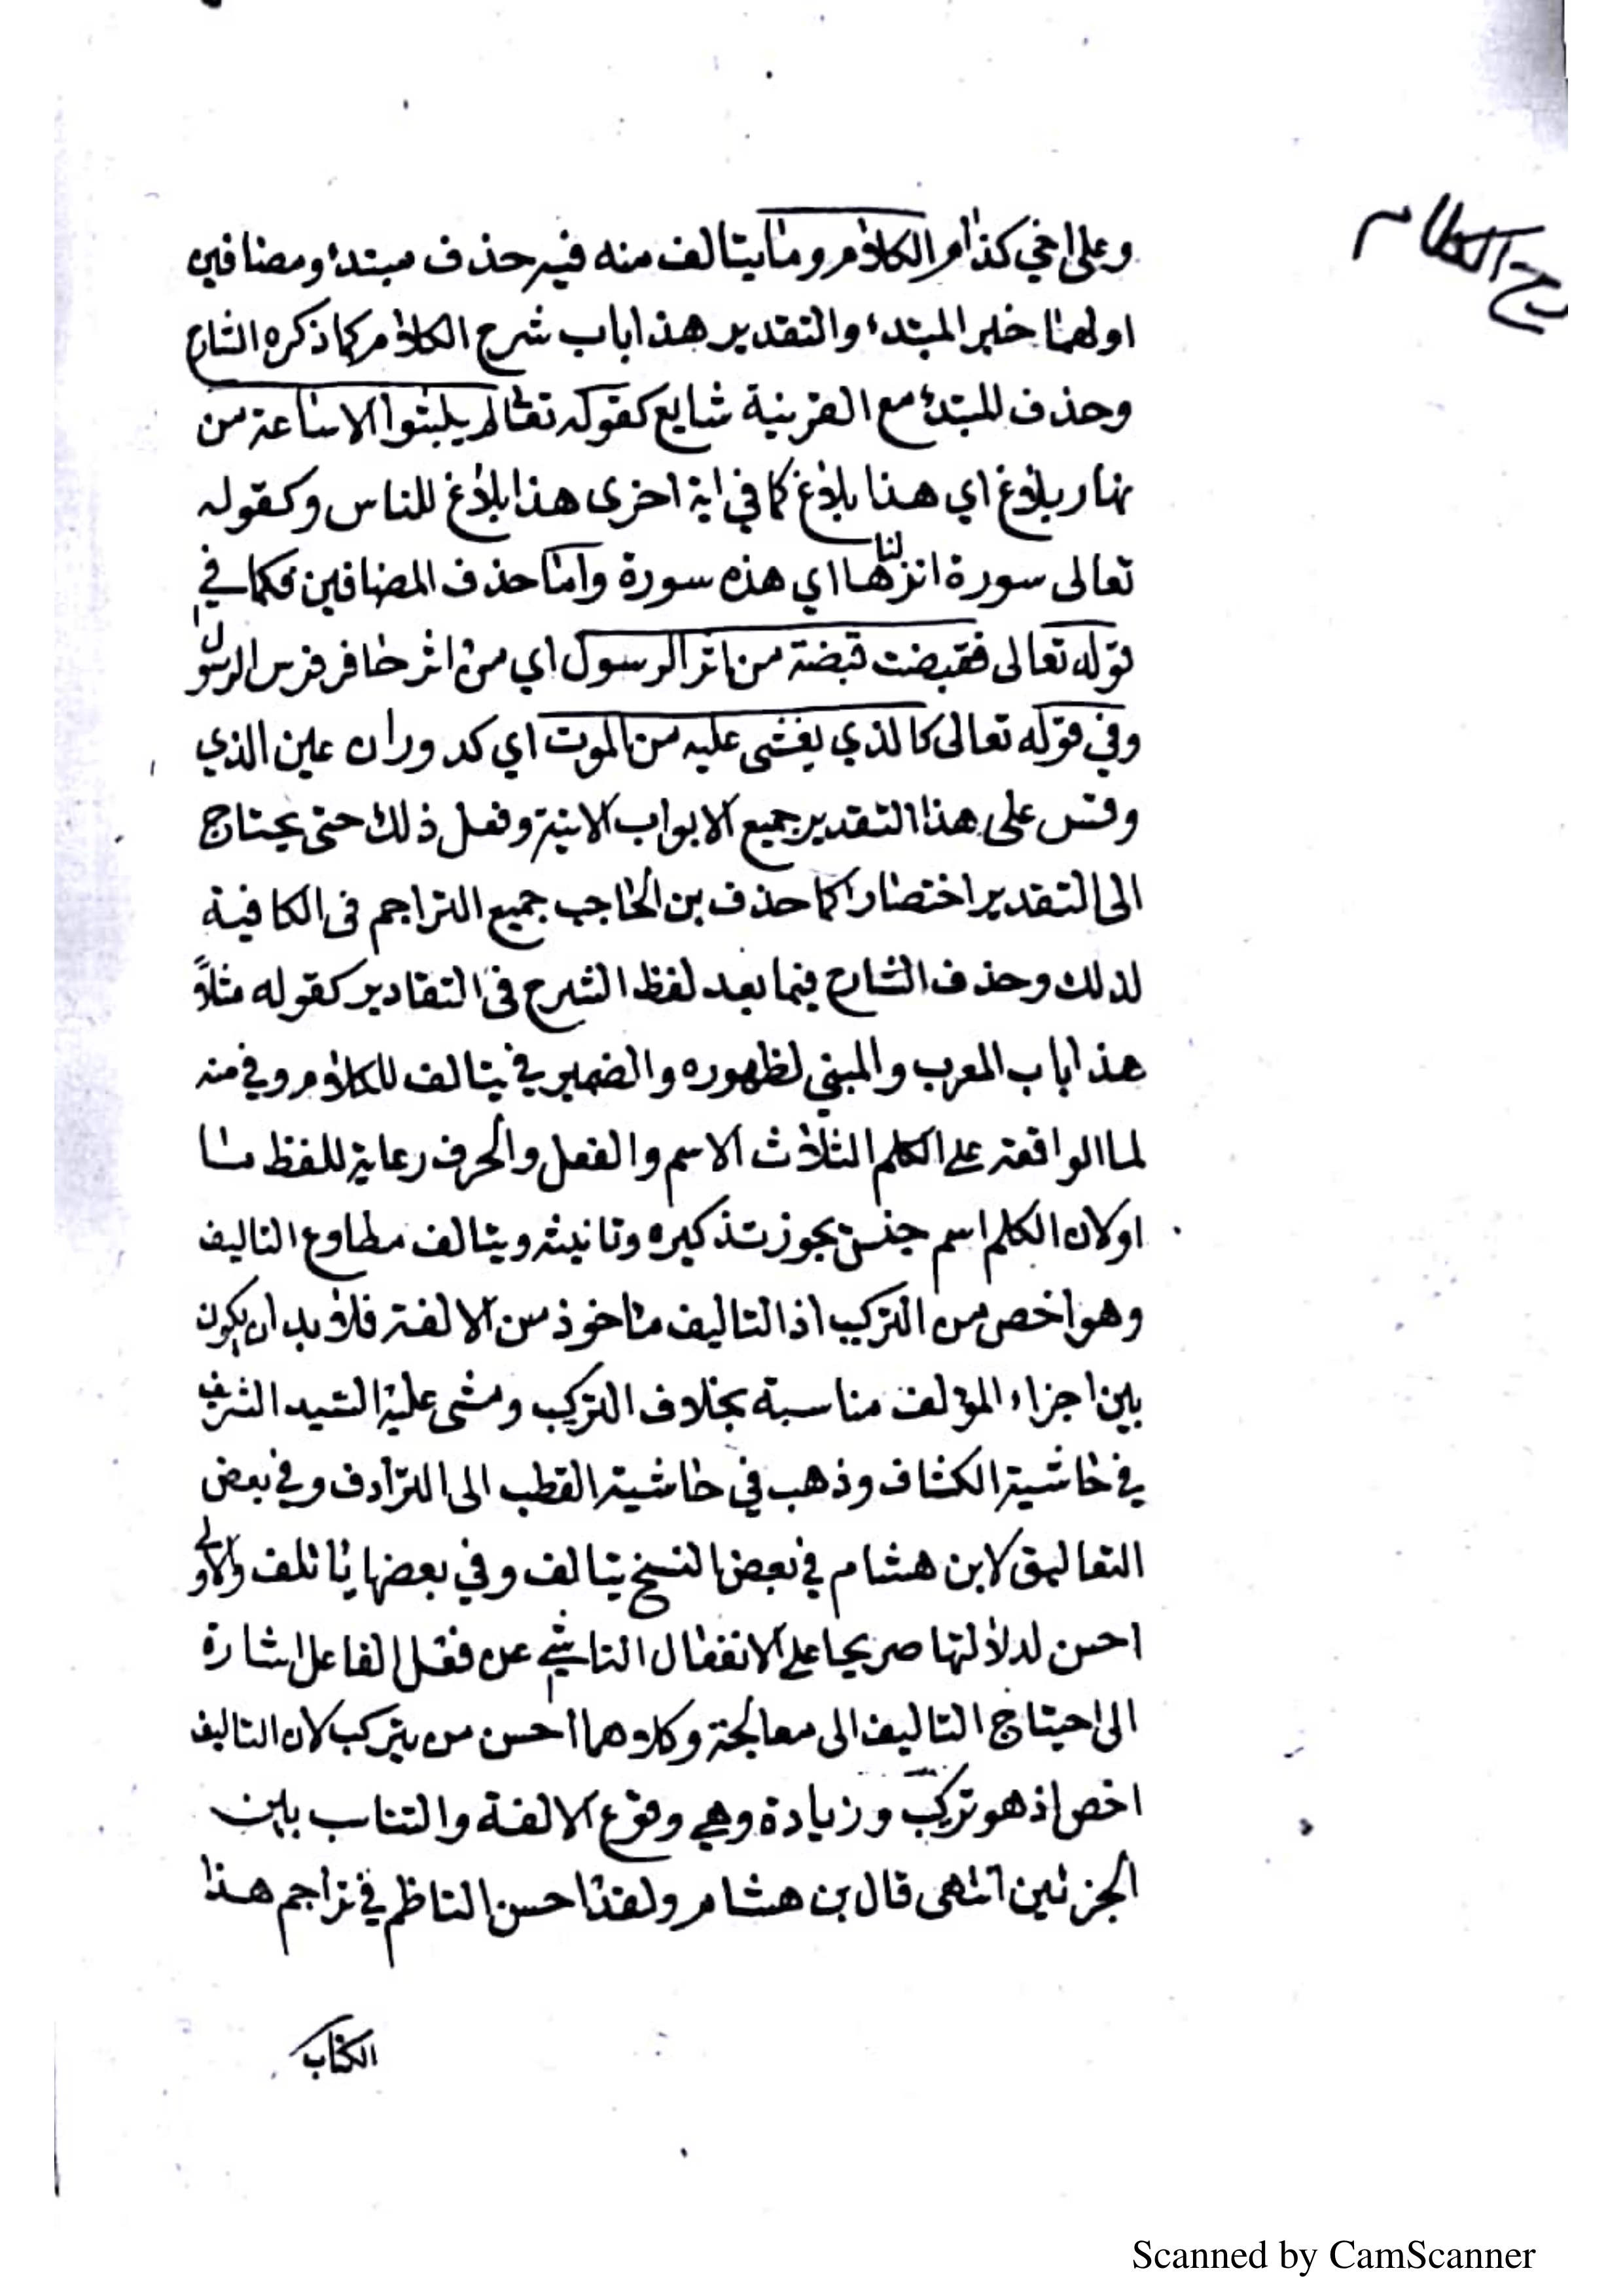 وعلى اخي كذا م الكلام وما يتالف منه فيه حذف مبتدء ومضافين
اولهما خبر المبتدء والتقدير هذا باب شرح الكلام كما ذكره الشارح
وحذف المبتدء مع القرينة شايع كقوله تعالى لم يلبثوا الا ساعة من
نهار بلاغ اي هذا بلاغ كما في اية اخرى هذا بلاغ للناس وكقوله
تعالى سورة انزلناها اي هذه سورة واما حذف المضافين فكما في
قوله تعالى فقبضت قبضة من اثر الرسول اي من اثر حافر فرس الرسول
وفي قوله تعالى كالذي يغشى عليه من الموت اي كدوران عين الذي
وقس على هذا التقدير جميع الابواب الاتية وفعل ذلك حتى يحتاج
الى التقدير اختصارا كما حذف بن الحاجب جميع التراجم فى الكافية
لذلك وحذف الشارح فيما بعد لفظ الشرح فى التقادير كقوله مثلاً
هذا باب المعرب والمبني لظهوره والضمير في يتالف للكلام وفي منه
لما الواقعة على الكلم الثلاث الاسم والفعل والحرف رعاية للفظ ما
او لان الكلم اسم جنس يجوز تذكيره وتانيثه ويتالف مطاوع التاليف
وهو اخص من التركيب اذ التاليف ماخوذ من الالفة فلا بد ان يكون
بين اجزاء المؤلف مناسبة بخلاف التركيب ومشى عليه السيد الشريف
في حاشية الكشاف وذهب في حاشية القطب الى الترادف وفي بعض
التعاليق لابن هشام في بعض النسخ يتالف وفي بعضها ياتلف والاولى
احسن لدلالتها صريحا على الانفعال الناشي عن فعل الفاعل اشارة
الى احتياج التاليف الى معالجة وكلاهما أحسن من يتركب لان التاليف
اخص اذ هو تركيب وزيادة وهي وقوع الالفة والتناسب بين
الجزئين انتهى قال بن هشام ولقد احسن الناظم في تراجم هذا
الكتاب